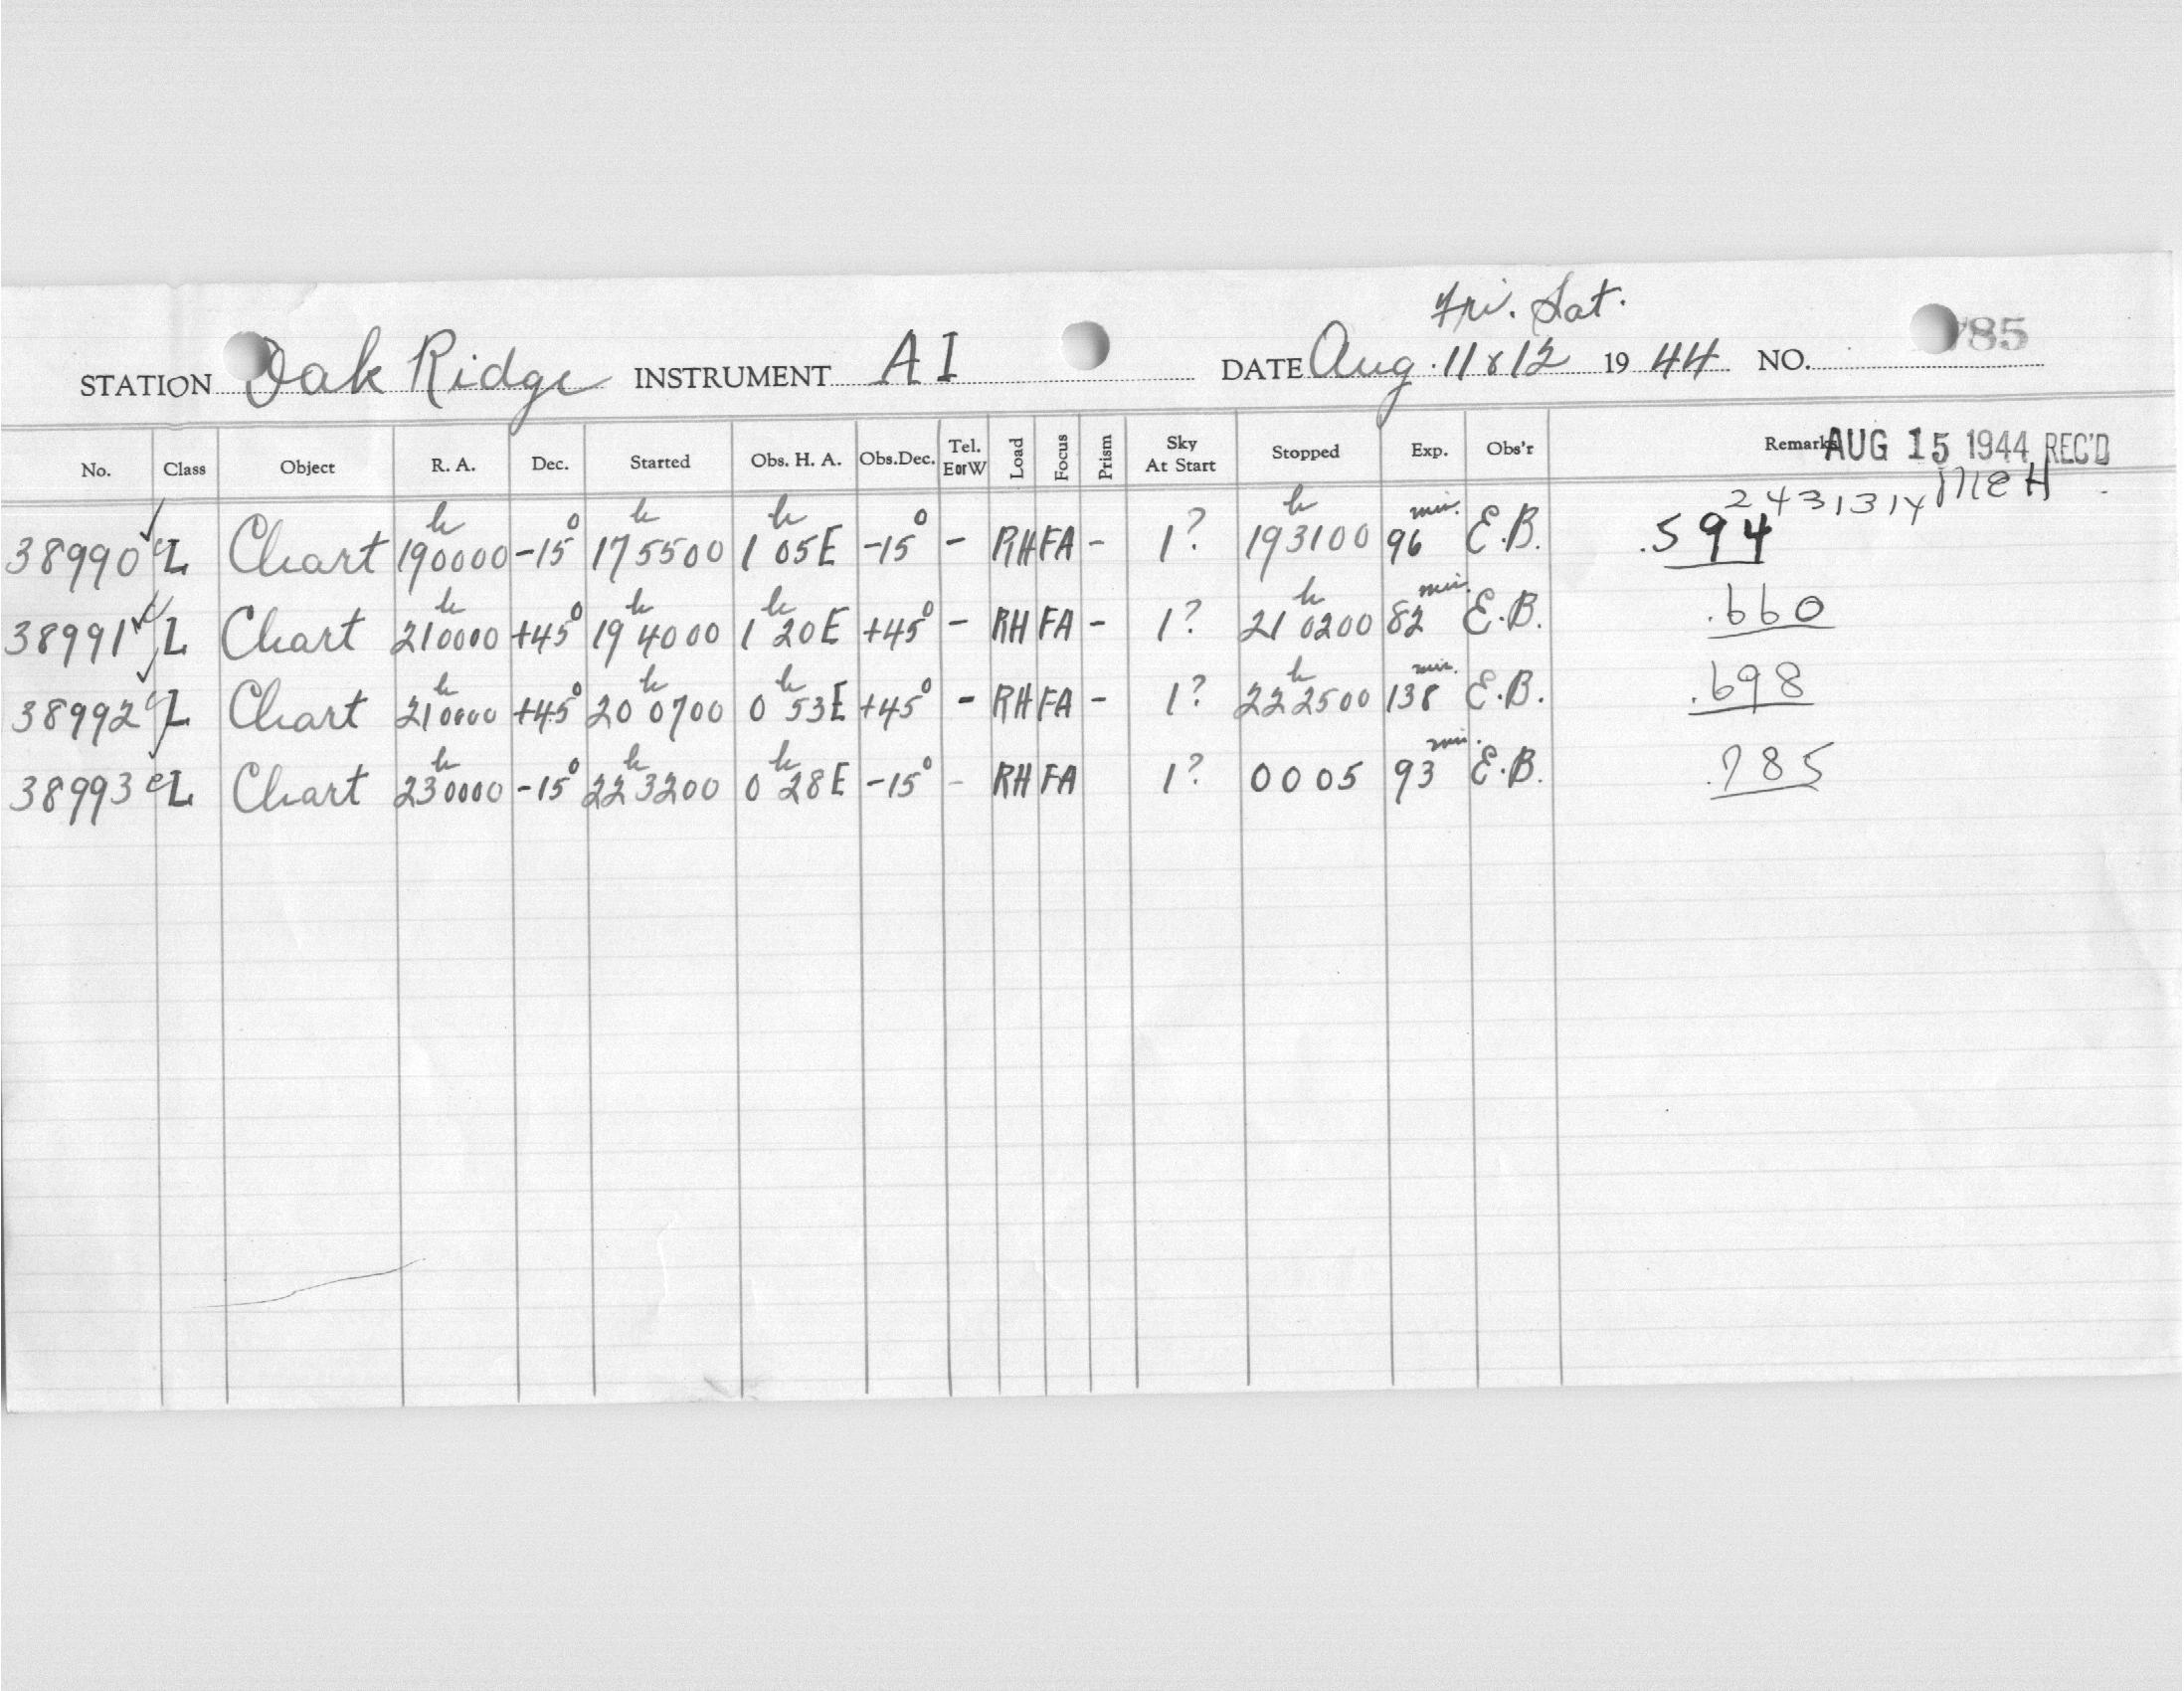 Fri. Sat.
STATION Oak Ridge INSTRUMENT AI DATE Aug. 11 & 12 1944 NO. 785
No. Class Object R. A. Dec. Started Obs. H. A. Obs.Dec. Tel. E or W Load Focus Prism Sky At Start Stopped Exp. Obs'r Remarks AUG 15 1944 REC'D
2431314 MEH
38990 L Chart 19h0000 -15° 17h5500 1h05E -15° - RH FA - 1? 19h3100 96 min. E.B. .594
38991 L Chart 21h0000 +45° 19h4000 1h20E +45° - RH FA - 1? 21h0200 82 min. E.B. .660
38992 L Chart 21h0000 +45° 20h0700 0h53E +45° - RH FA - 1? 22h2500 138 min. E.B. .698
38993 L Chart 23h0000 -15° 22h3200 0h28E -15° - RH FA 1? 0005 93 min. E.B. .785